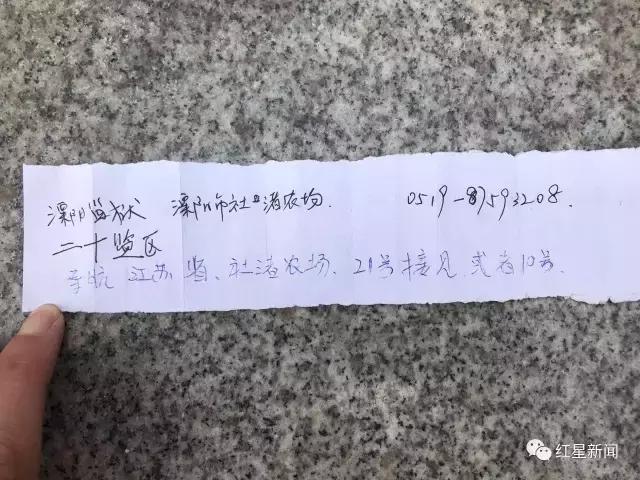 溧阳监狱 溧阳市社渚农场. 0519-87593208.
二十监区
江苏省、社渚农场、21号接见 或者10号.
红星新闻